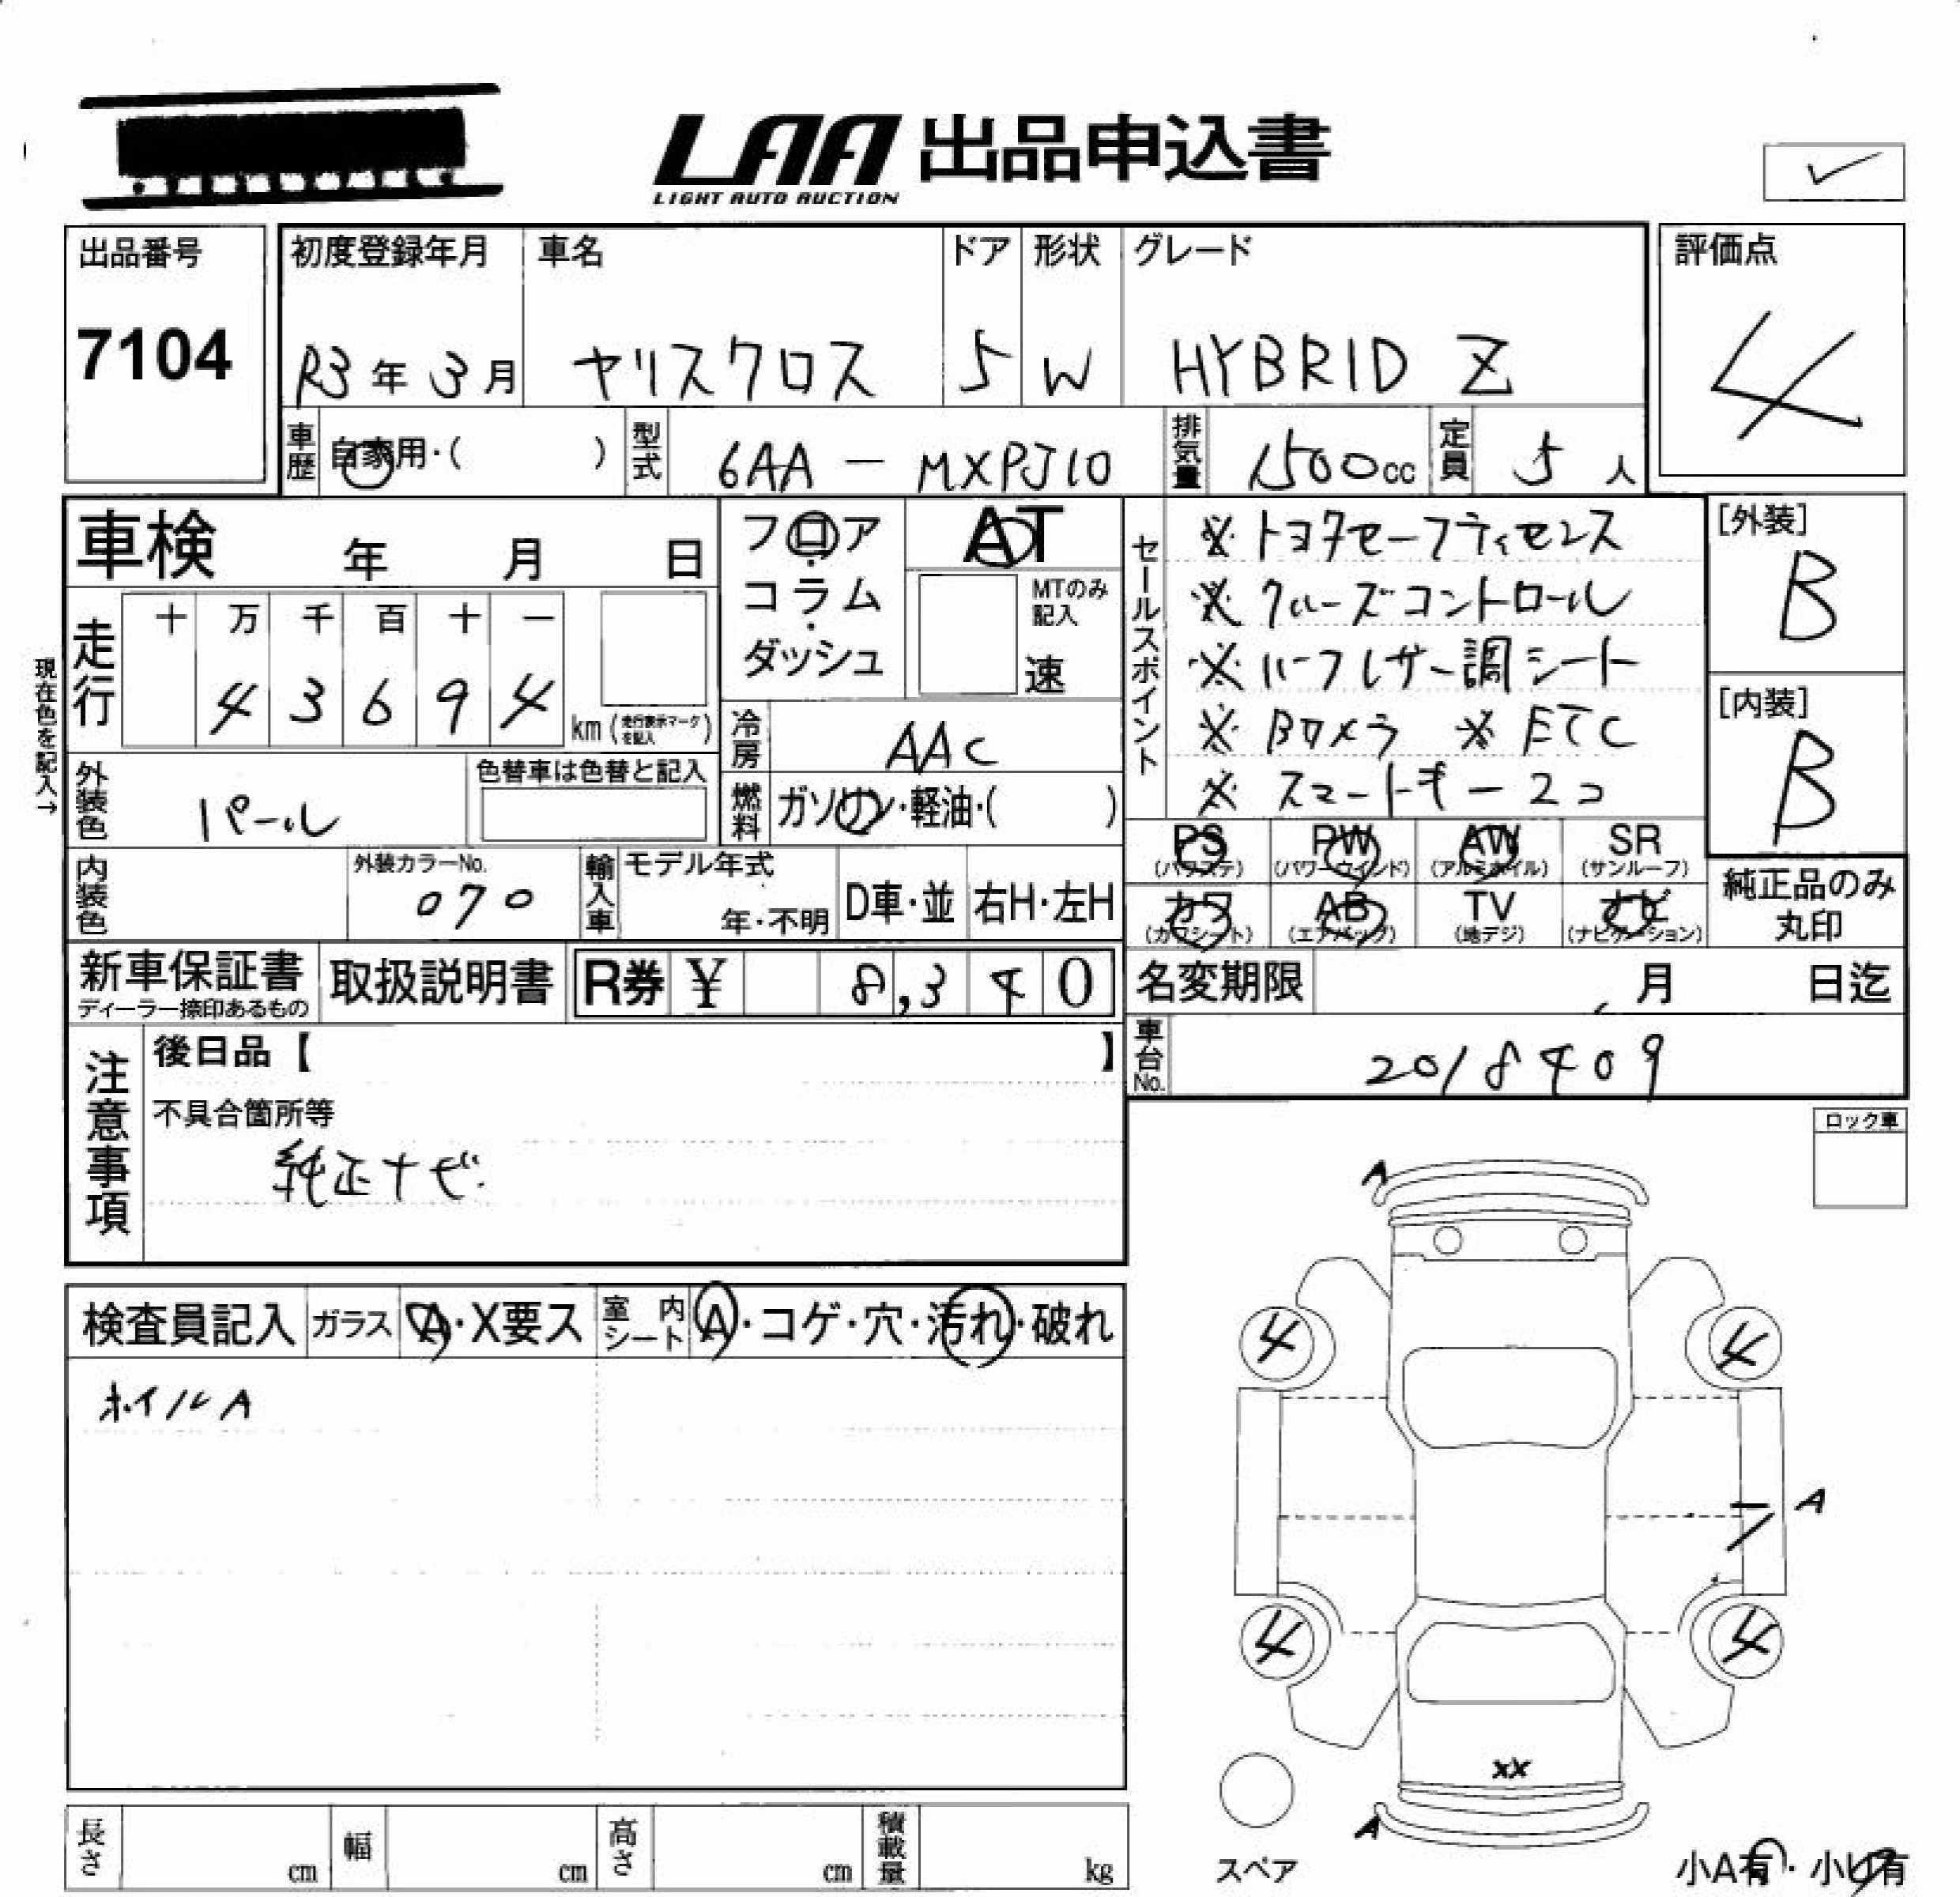 LAA 出品申込書
LIGHT AUTO AUCTION
出品番号
7104
初度登録年月
R3年 3月
車名
ヤリスクロス
ドア
5
形状
W
グレード
HYBRID Z
評価点
4
車歴
自家用・( )
型式
6AA - MXPJ10
排気量
1500cc
定員
5人
車検 年 月 日
現在色を記入→
走行
十 万 千 百 十 一
4 3 6 9 4
km (走行表示マークを記入)
フロア
コラム
ダッシュ
AT
MTのみ記入
速
冷房
AAC
燃料
ガソリン・軽油・( )
外装色
パール
色替車は色替と記入
内装色
外装カラーNo.
070
輸入車
モデル年式
年・不明
D車・並
右H・左H
セールスポイント
※ トヨタセーフティセンス
※ クルーズコントロール
※ ハーフレザー調シート
※ Bカメラ ※ ETC
※ スマートキー2コ
[外装]
B
[内装]
B
PS (パワステ)
PW (パワーウィンド)
AW (アルミホイル)
SR (サンルーフ)
カワ (カワシート)
AB (エアバッグ)
TV (地デジ)
ナビ (ナビゲーション)
純正品のみ
丸印
新車保証書
ディーラー捺印あるもの
取扱説明書
R券 ¥ 8,340
名変期限 月 日迄
車台No.
2018409
注意事項
後日品【 】
不具合箇所等
純正ナビ
ロック車
検査員記入
ガラス
A・X要ス
室内シート
A・コゲ・穴・汚れ・破れ
ホイルA
A
4 4
A
4 4
XX
A
スペア
小A有・小U有
長さ cm
幅 cm
高さ cm
積載量 kg